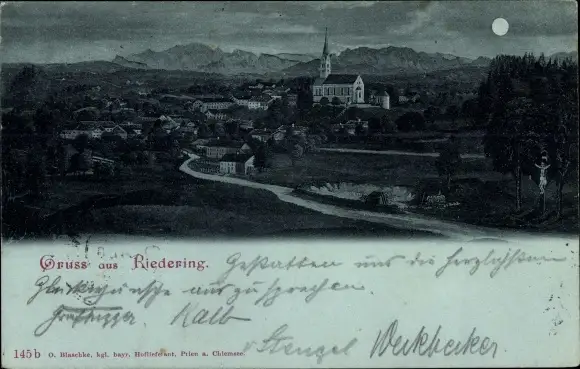 Gruss aus Riedering.
Gestatten uns die herzlichsten
Glückwünsche auszusprechen.
Kalb
v Stengel Weckbecker
145 b O. Blaschke, kgl. bayr. Hoflieferant, Prien a. Chiemsee.